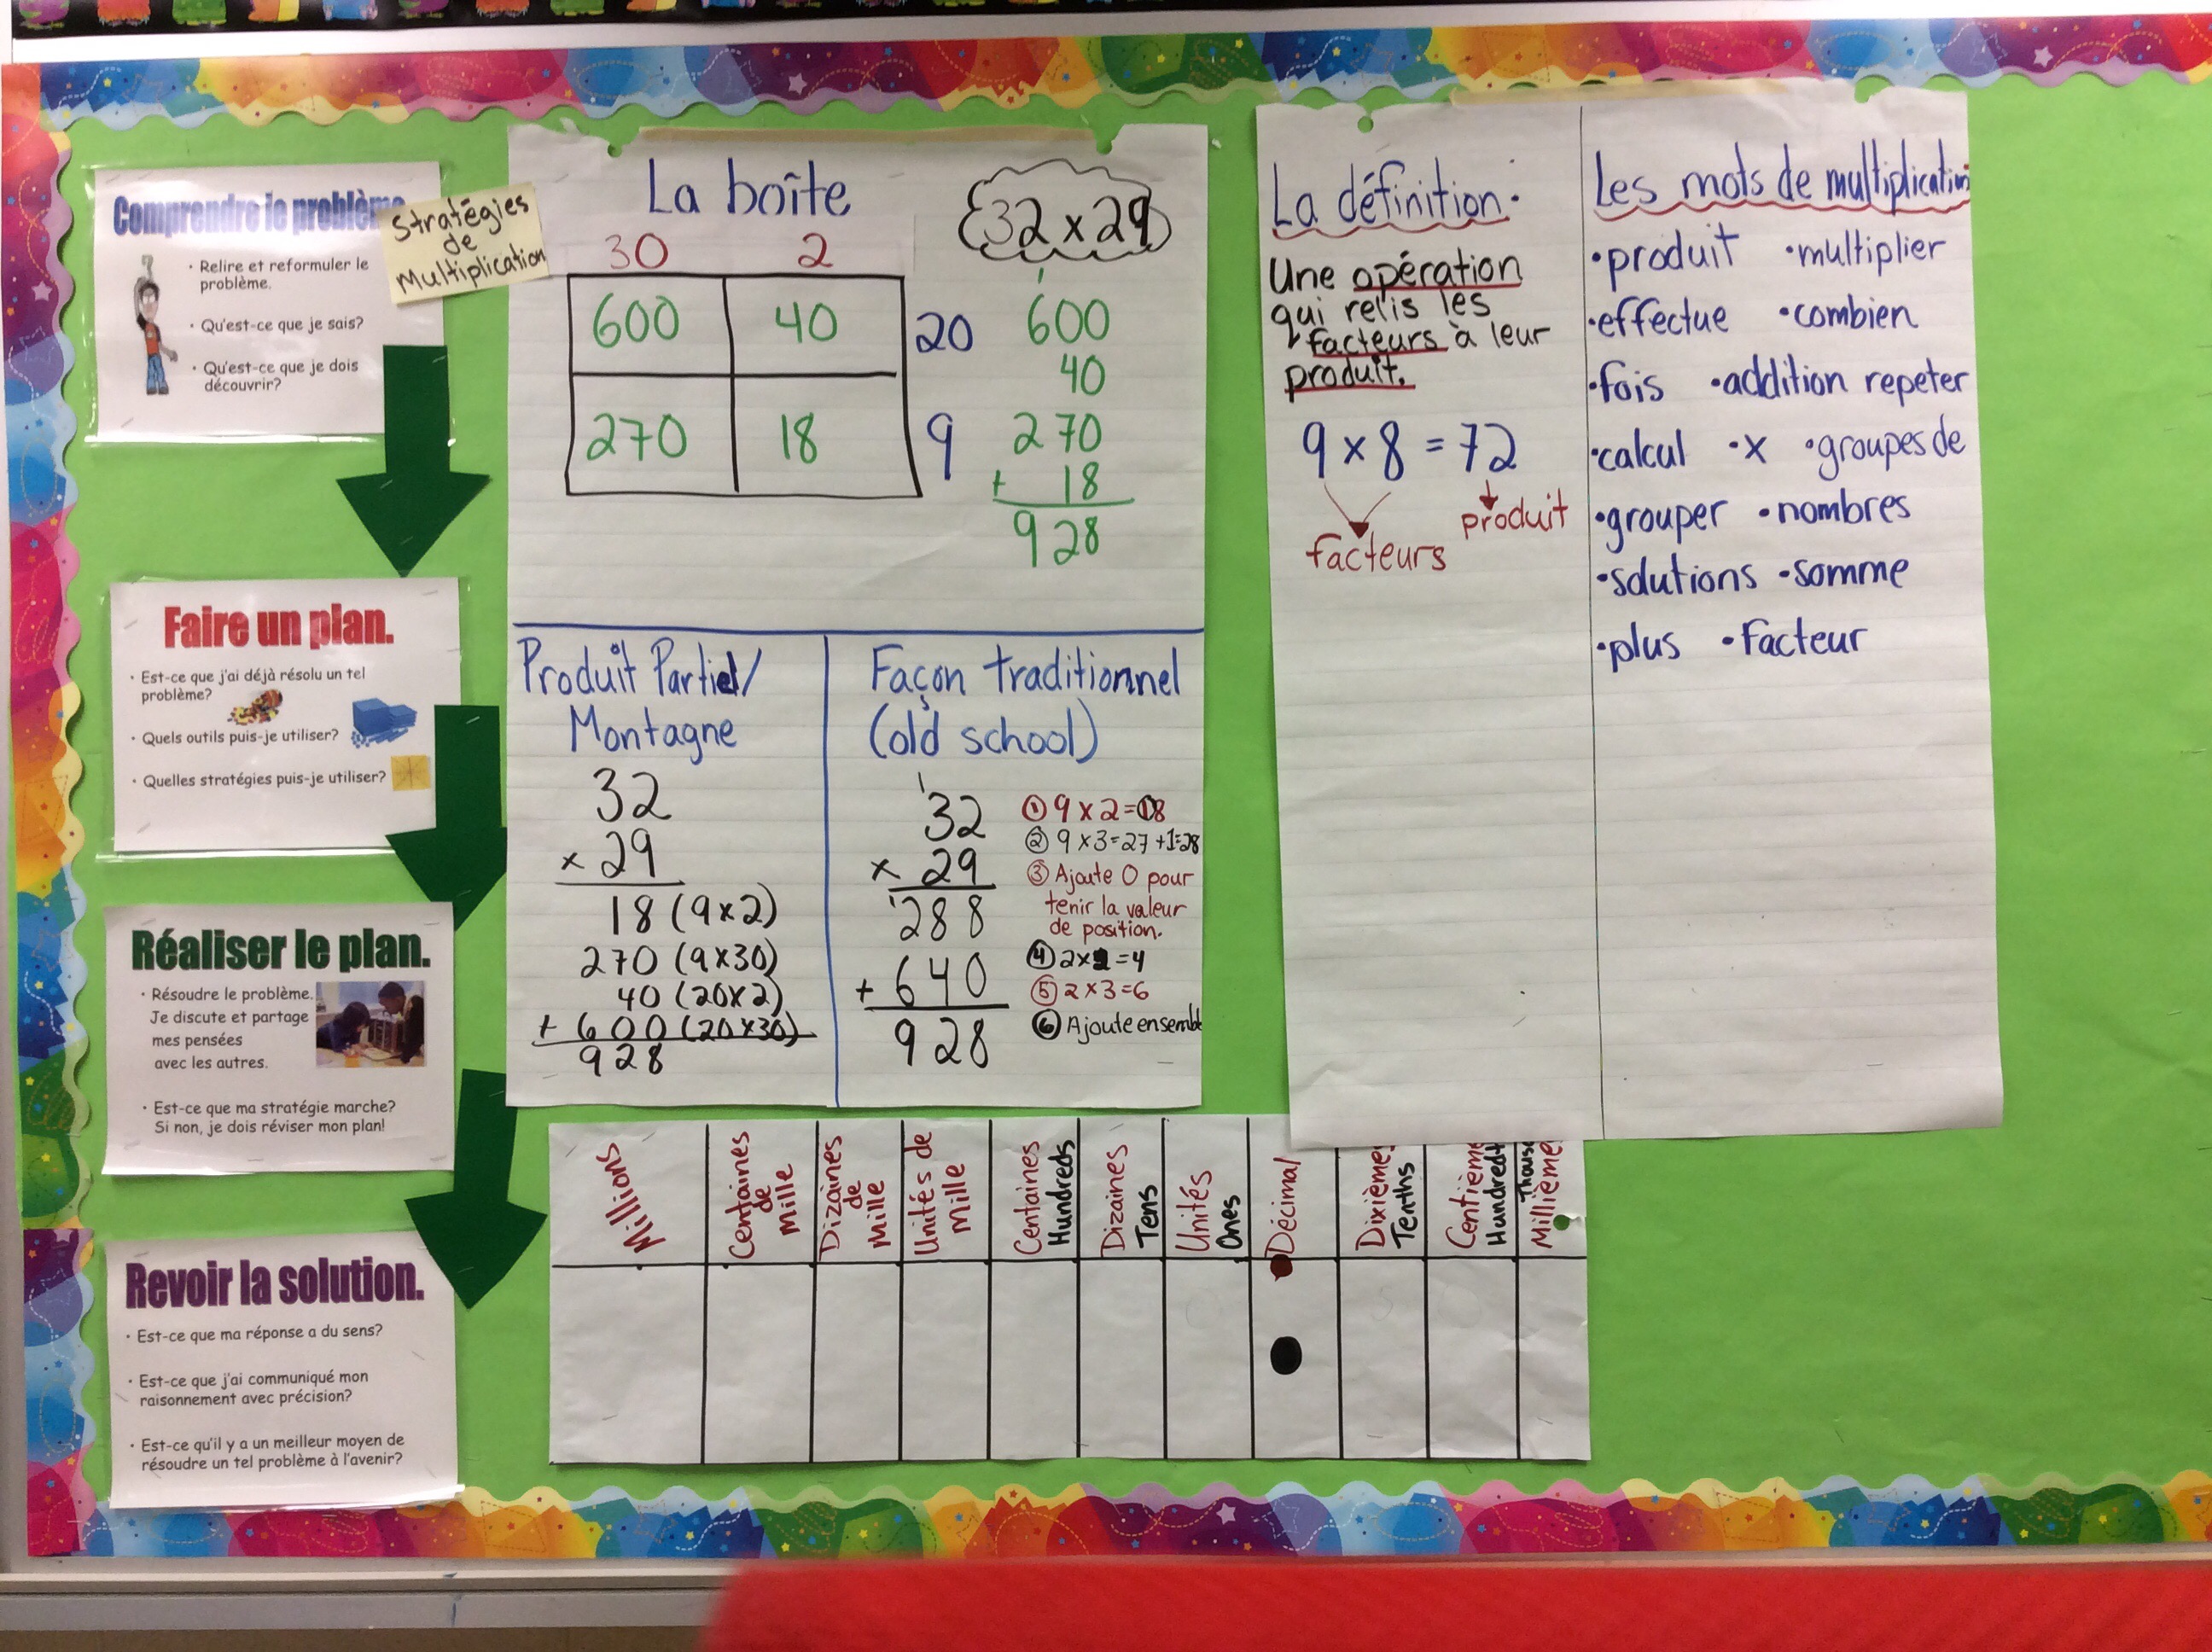 Comprendre le problème
• Relire et reformuler le
problème.
• Qu'est-ce que je sais?
• Qu'est-ce que je dois
découvrir?
Stratégies
de
Multiplication
Faire un plan.
• Est-ce que j'ai déjà résolu un tel
problème?
• Quels outils puis-je utiliser?
• Quelles stratégies puis-je utiliser?
Réaliser le plan.
• Résoudre le problème.
Je discute et partage
mes pensées
avec les autres.
• Est-ce que ma stratégie marche?
Si non, je dois réviser mon plan!
Revoir la solution.
• Est-ce que ma réponse a du sens?
• Est-ce que j'ai communiqué mon
raisonnement avec précision?
• Est-ce qu'il y a un meilleur moyen de
résoudre un tel problème à l'avenir?
La boîte
32 x 29
30 2
600 40 20
270 18 9
1
600
40
270
+ 18
928
Produit Partiel/
Montagne
32
x 29
18 (9x2)
270 (9x30)
40 (20x2)
+ 600 (20x30)
928
Façon traditionnel
(old school)
1
32
x 29
1
288
+ 640
928
① 9 x 2=18
② 9 x 3=27 +1=28
③ Ajoute 0 pour
tenir la valeur
de position.
④ 2x2=4
⑤ 2 x 3=6
⑥ Ajoute ensemble
La définition.
Une opération
qui relis les
facteurs à leur
produit.
9 x 8 = 72
produit
facteurs
Les mots de multiplication
• produit • multiplier
• effectue • combien
• fois • addition repeter
• calcul • x • groupes de
• grouper • nombres
• solutions • somme
• plus • Facteur
Millions
Centaines
de
Mille
Dizaines
de
Mille
Unités de
Mille
Centaines
Hundreds
Dizaines
Tens
Unités
Ones
Décimal
Dixième
Tenths
Centième
Hundredt
Thous
Millième